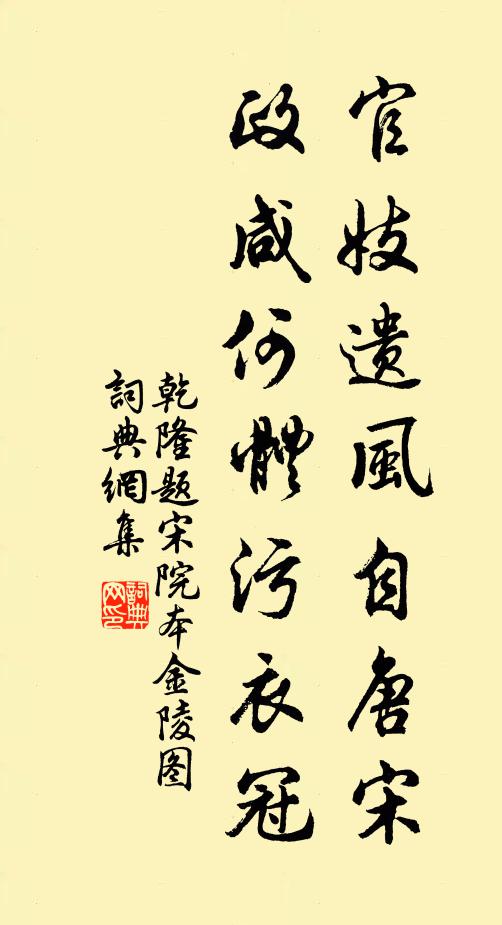 官妓遗風自唐宋
政咸何體污衣冠
乾隆题宋院本金陵图
詞典網集
詞典网印